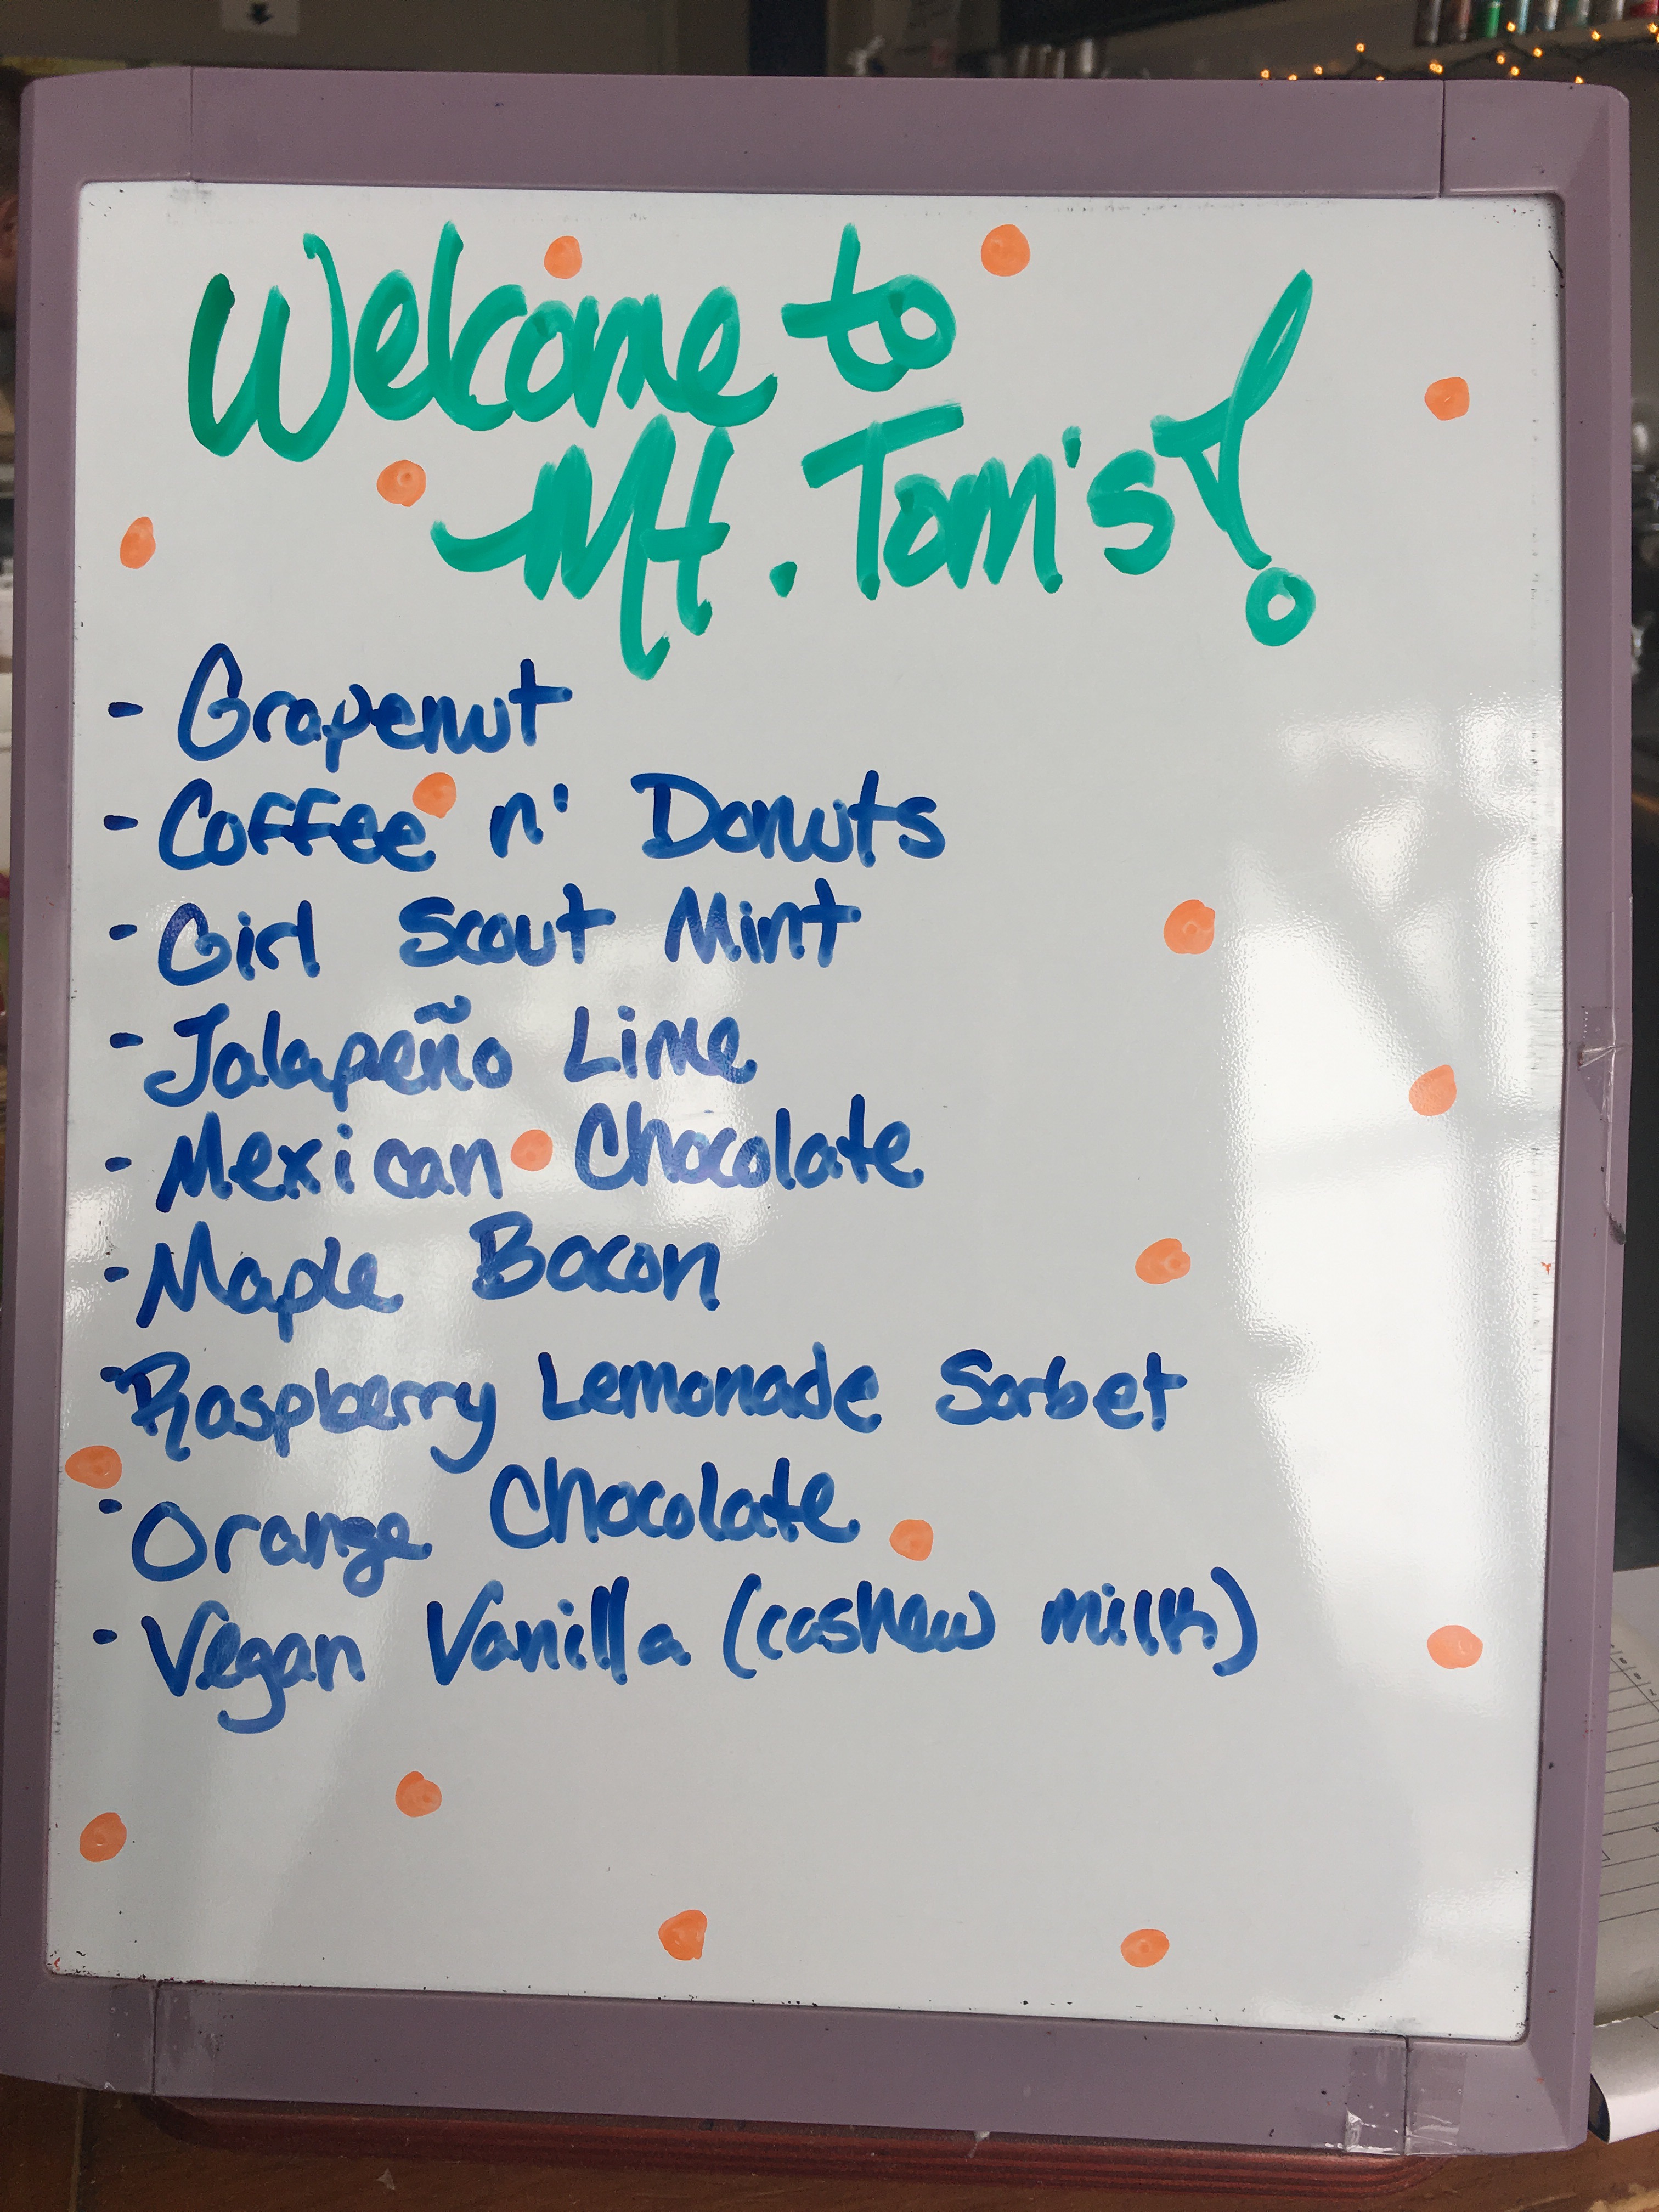 Welcome to
Mt. Tom's!
- Grapenut
- Coffee n' Donuts
- Girl Scout Mint
- Jalapeño Lime
- Mexican Chocolate
- Maple Bacon
- Raspberry Lemonade Sorbet
- Orange Chocolate
- Vegan Vanilla (cashew milk)